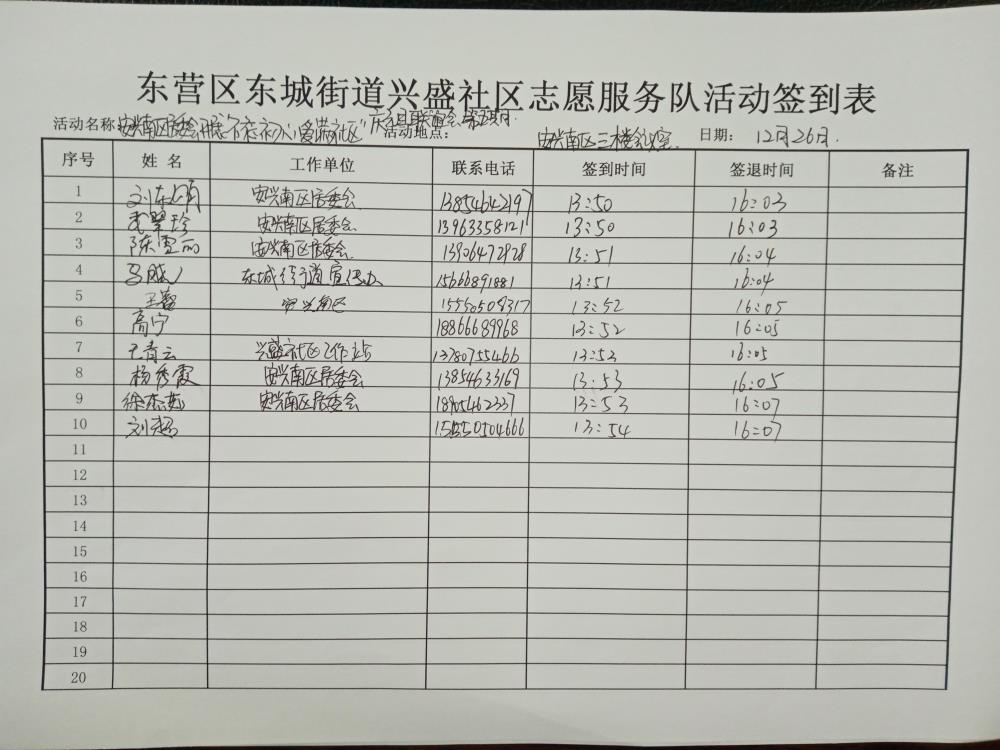 东营区东城街道兴盛社区志愿服务队活动签到表
活动名称 安兴南区居委会 "不忘初心 爱满社区" 庆元旦联谊会 第五期 活动地点: 安兴南区三楼会议室 日期: 12月26日
序号 姓名 工作单位 联系电话 签到时间 签退时间 备注
1 刘东明 安兴南区居委会 13854642197 13:50 16:03
2 武翠珍 安兴南区居委会 13963358121 13:50 16:03
3 陈雪丽 安兴南区居委会 13906472828 13:51 16:04
4 马威 东城街道宣传办 15666891881 13:51 16:04
5 王馨 安兴南区 15550508317 13:52 16:05
6 高宁 18866689968 13:52 16:05
7 王青云 兴盛社区工作站 13780755466 13:52 16:05
8 杨秀霞 安兴南区居委会 13854633169 13:53 16:05
9 徐杰 安兴南区居委会 18905462337 13:53 16:07
10 刘超 15550504666 13:54 16:07
11
12
13
14
15
16
17
18
19
20